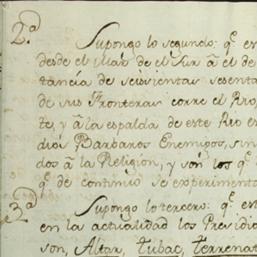 2.ª
Supongo lo segundo: q.e es
desde el mar de el Sur â el de
tancia de seiscientas sesenta
de sus Fronteras corre el Rio,
te, y â la espalda de este Rio es
dios Barbaros Enemigos, sin
dos â la Religion, y són los q.e
q.e de continuo se experimento
3.ª
Supongo lo tercero: q.e est
en la actualidad los Presidio
son, Altar, Tubac, Terrenat